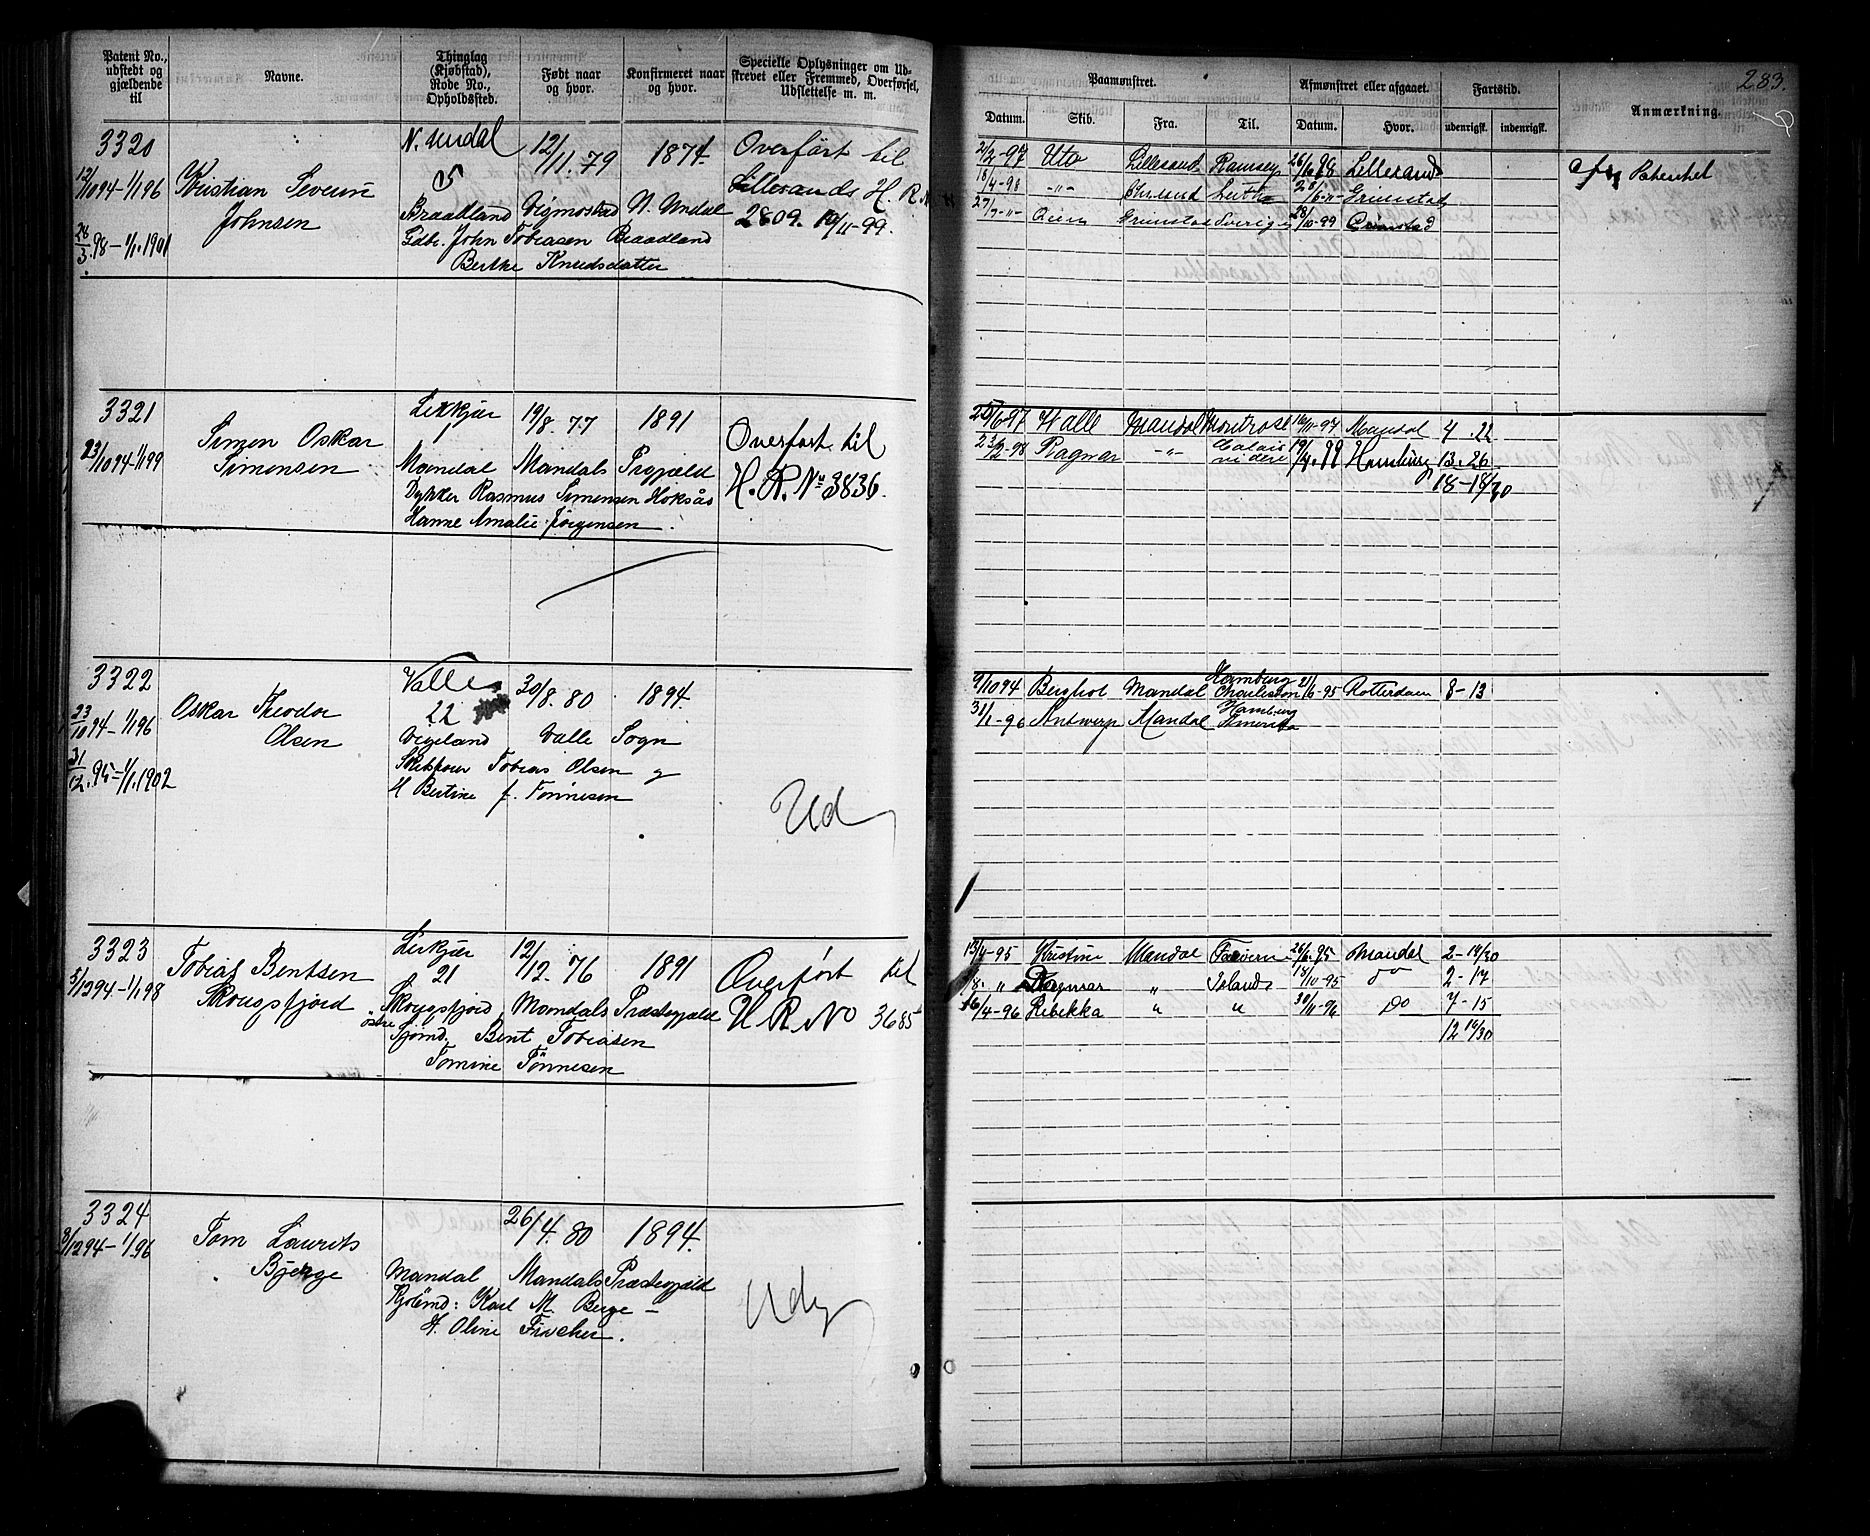 Patent No., udstedt og gjældende til
Navne.
Thinglag (Kjøbstad), Rode No., Opholdssted.
Født naar og hvor.
Konfirmeret naar og hvor.
Specielle Oplysninger om Udskrevet eller Fremmed, Overførsel, Udslettelse m. m.
Paamønstret.
Afmønstret eller afgaaet.
Fartstid.
Anmærkning.
283.
Datum.
Skib.
Fra.
Til.
Datum.
Hvor.
udenrigsk.
indenrigsk.
3320
12/10 94 – 1/1 96
28/3 98 – 1/1 1901
Kristian Severin
Johnsen
N. Undal
5
12/11. 79
1874
Overført til
Braadland Vigmostad N. Undal
Lillesands H. R. N
Gdbr. John Tobiasen Braadland
2809. 10/11-99.
Berthe Knudsdatter
2/2-97 Uto Lillesand Ramsey 26/6 98 Lillesand
18/4-98 -"- Grimstad
27/7-"- Grimstad Sverige 28/10-99 Grimstad
3321
23/10 94 – 1/1 99
Simon Oskar
Simonsen
19/8. 77
1891
Overført til
Mandal Mandals Prgjæld
H. R. No 3836.
Dykker Rasmus Simonsen Hoksås
Hanne Amalie Jörgensen.
25/6 97 Valle Mandal Montrose Mandal 4. 22
23/2-98 Dagmar -"- Calais videre 19/4. 99 Hamburg 13. 26
18-18/30
3322
23/10 94 – 1/1 96
31/12. 95 – 1/1. 1902
Oskar Theodor
Olsen
Valle
22
30/8. 80
1894
Vigeland Valle Sogn
Tobias Olsen og
H Bertine f. Tønnesen
Ud
9/10 94 Berghol Mandal Hamburg Charleston 21/6-95 Rotterdam 8-13
31/1-96 Antwerp Mandal Hamburg Amerika
3323
5/12 94 – 1/1 98
Tobias Bentsen
Skougsfjord
21
12/12. 76
1891
Overført til
Skougsfjord Mandals Præstegjæld
H R No 3685
østre Sjømd. Bent Tobiasen
Tomine Tønnesen
13/4-95 Kristine Mandal 26/6. 95 Mandal 2-14/30
8. " Dagmar " Island 18/10-95 do 2-17
16/4-96 Rebekka " " 30/11-96 Do 7-15
12 16/30
3324
8/12 94 – 1/1 96
Tom Laurits
Bjerge
26/4. 80
1894.
Mandal Mandals Præstegjæld
Kjøbmd: Karl M. Berge –
H. Oline Fischer.
Udg